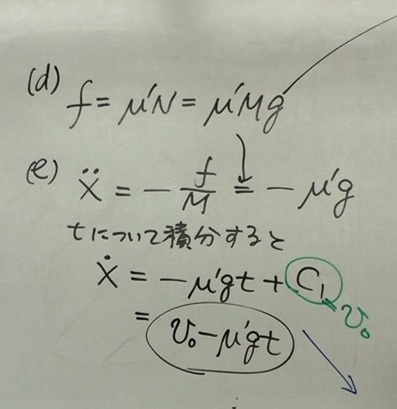 (d)
f = μ'N = μ'Mg
(e) ẍ = - f/M = - μ'g
tについて積分すると
ẋ = -μ'gt + C₁
v₀
= v₀ - μ'gt